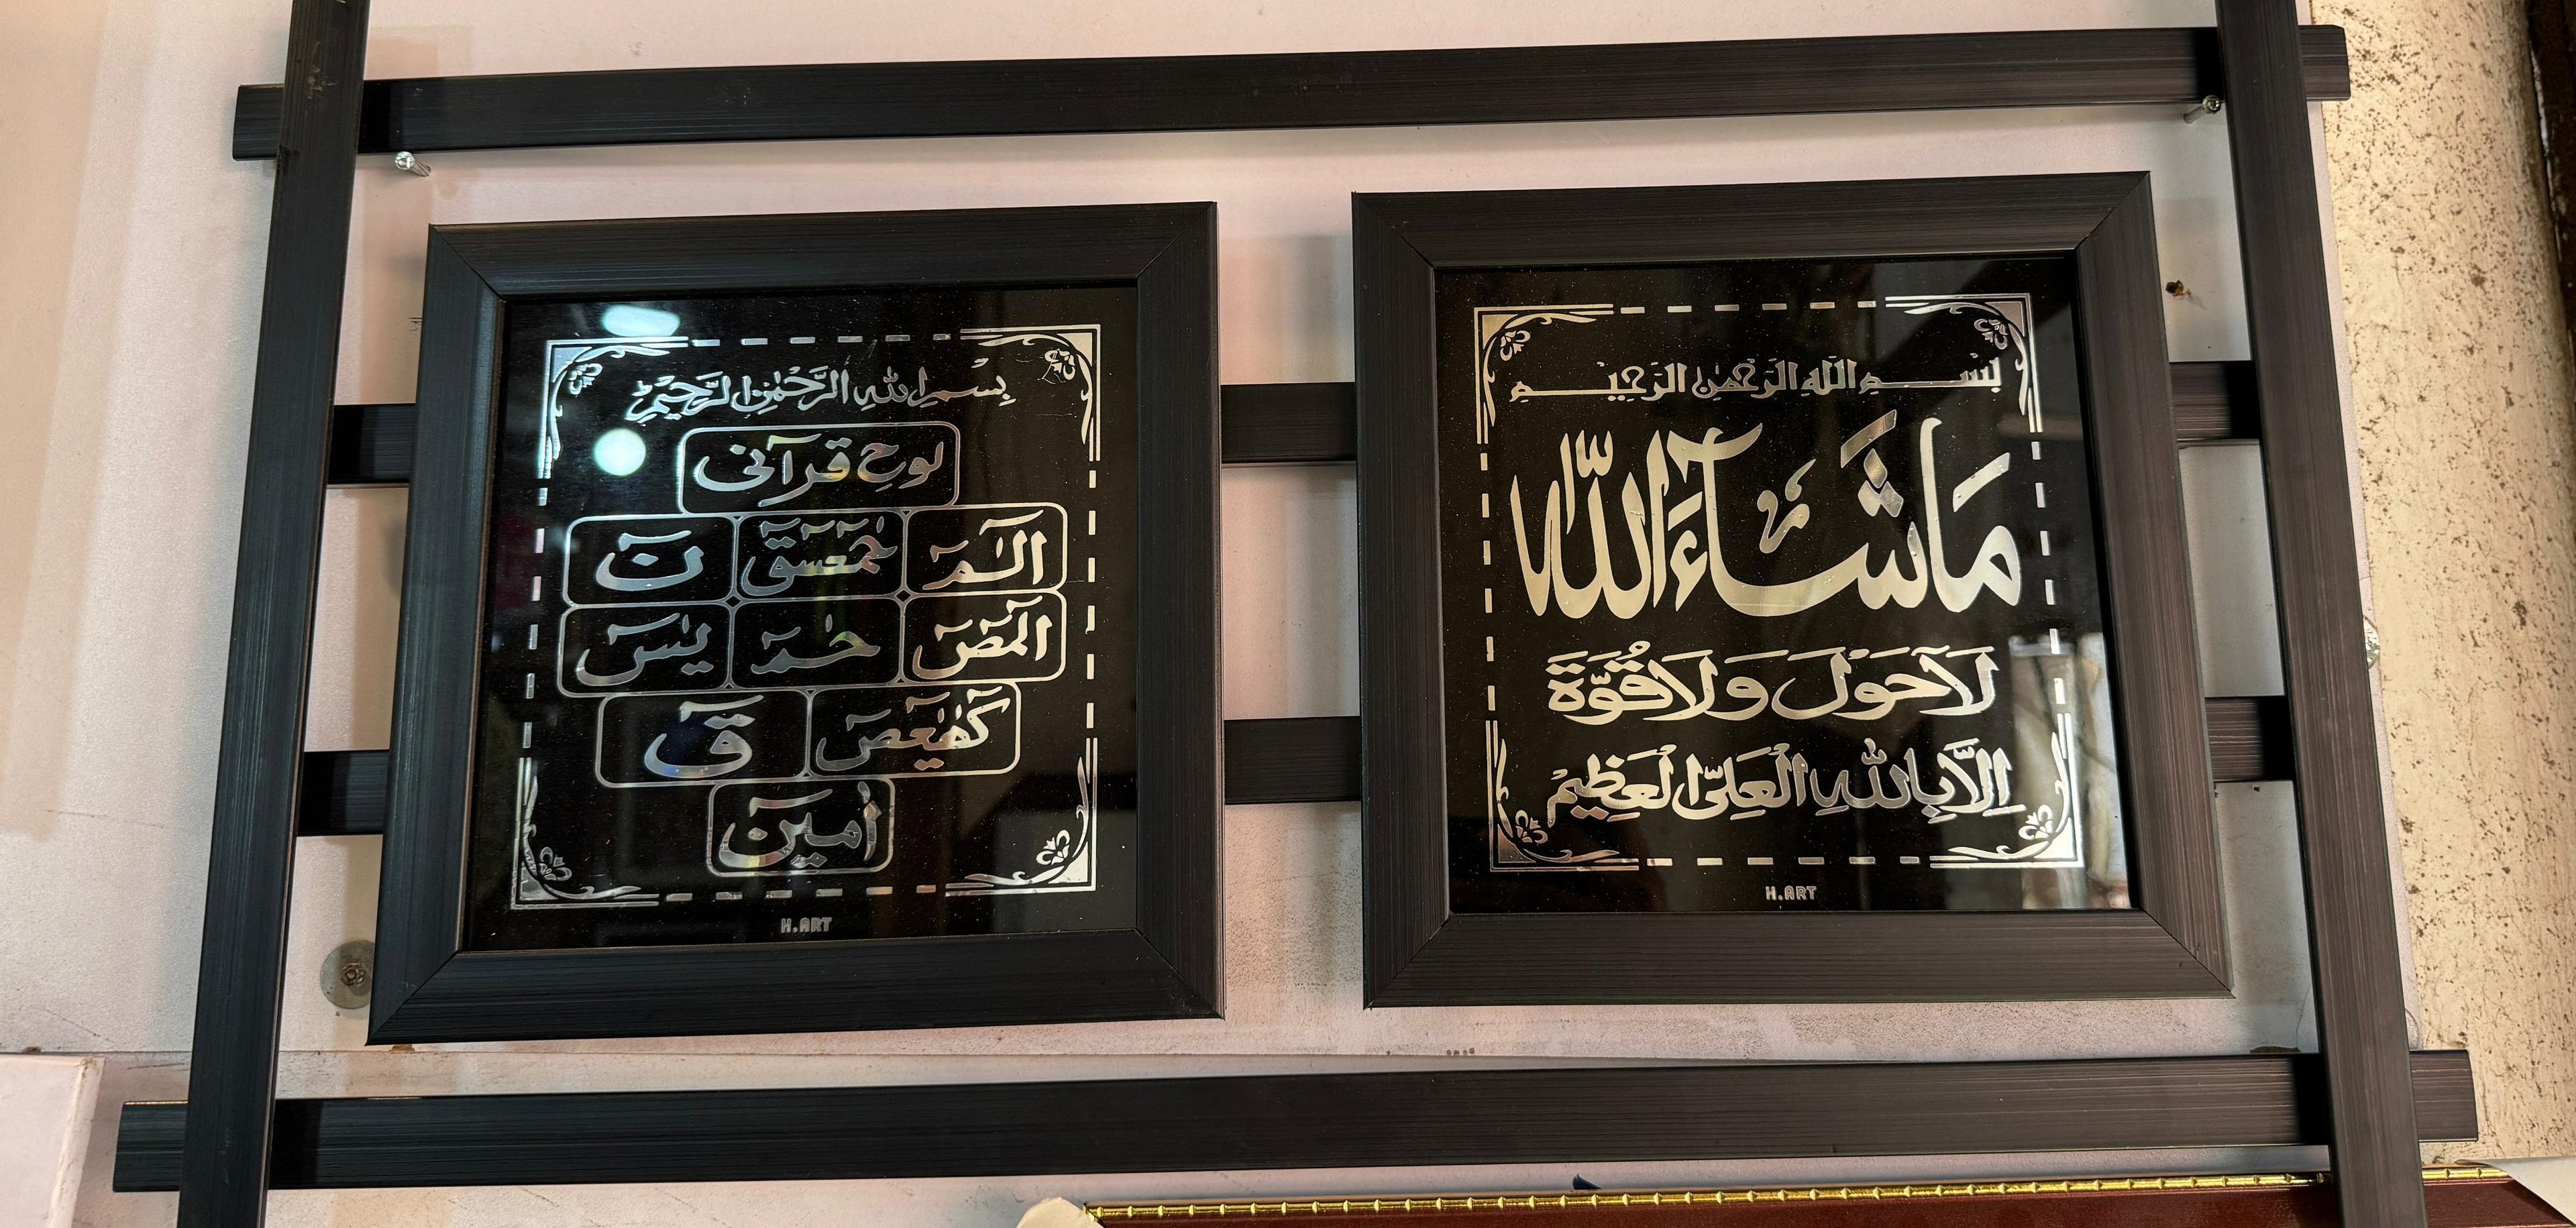 بِسْمِ اللهِ الرَّحْمٰنِ الرَّحِيْمِ
لوحِ قرآنی
الٓـمٓ حٰمٓعٓسٓقٓ نٓ
الٓمٓصٓ حٰـمٓ یٰسٓ
كٓهٰیٰعٓصٓ قٓ
أمین
H.ART
بِسْـــمِ اللهِ الرَحْمٰنِ الرَحِيـــم
مَا شَآءَاللّٰه
لَاحَوْلَ وَلَا قُوَّةَ
اِلَّا بِاللّٰهِ الْعَلِیِّ الْعَظِیْمْ
H.ART